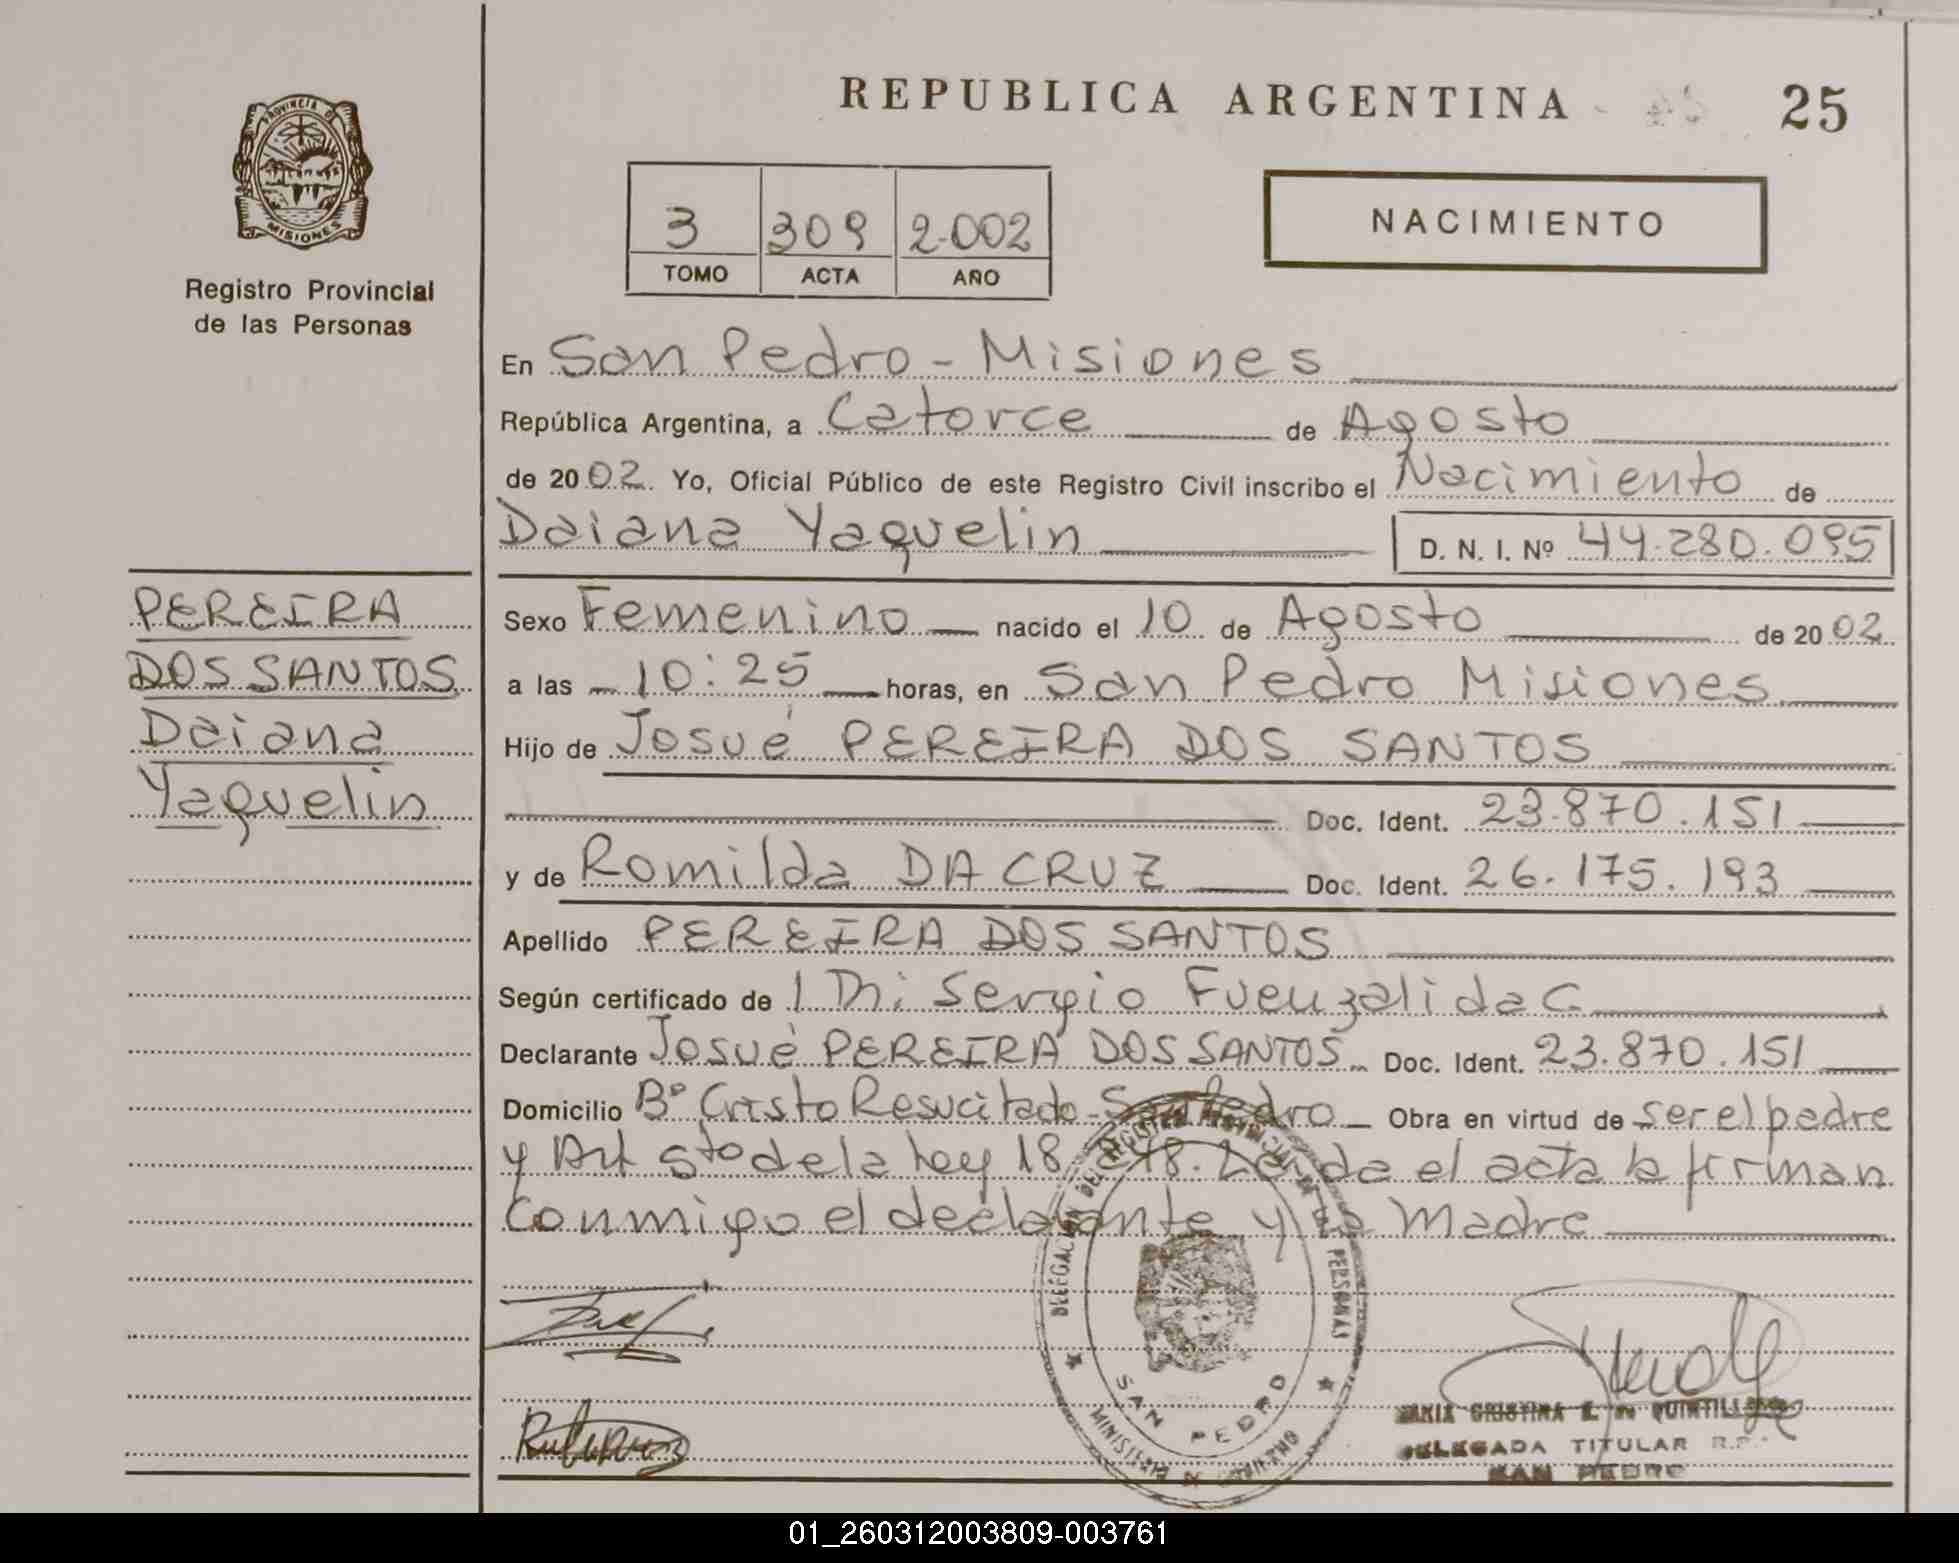 REPUBLICA ARGENTINA 25
PROVINCIA DE
MISIONES
Registro Provincial
de las Personas
3 309 2.002
TOMO ACTA AÑO
NACIMIENTO
En San Pedro - Misiones
República Argentina, a Catorce de Agosto
de 2002. Yo, Oficial Público de este Registro Civil inscribo el Nacimiento de
Daiana Yaquelin D. N. I. Nº 44.280.095
PEREIRA
DOS SANTOS
Daiana
Yaquelin
Sexo Femenino nacido el 10 de Agosto de 2002
a las 10:25 horas, en San Pedro Misiones
Hijo de Josué PEREIRA DOS SANTOS
Doc. Ident. 23.870.151
y de Romilda DA CRUZ Doc. Ident. 26.175.193
Apellido PEREIRA DOS SANTOS
Según certificado de Sergio Fuenzalida C.
Declarante Josué PEREIRA DOS SANTOS Doc. Ident. 23.870.151
Domicilio Bº Cristo Resucitado - San Pedro Obra en virtud de ser el padre
y Art 5to de la Ley 18.248. Leída el acta la firman
conmigo el declarante y la Madre
DELEGACION DEL REGISTRO PROVINCIAL DE LAS PERSONAS
SAN PEDRO
MINISTERIO DE GOBIERNO
MARIA CRISTINA
DELEGADA TITULAR R.P.
SAN PEDRO
01_260312003809-003761